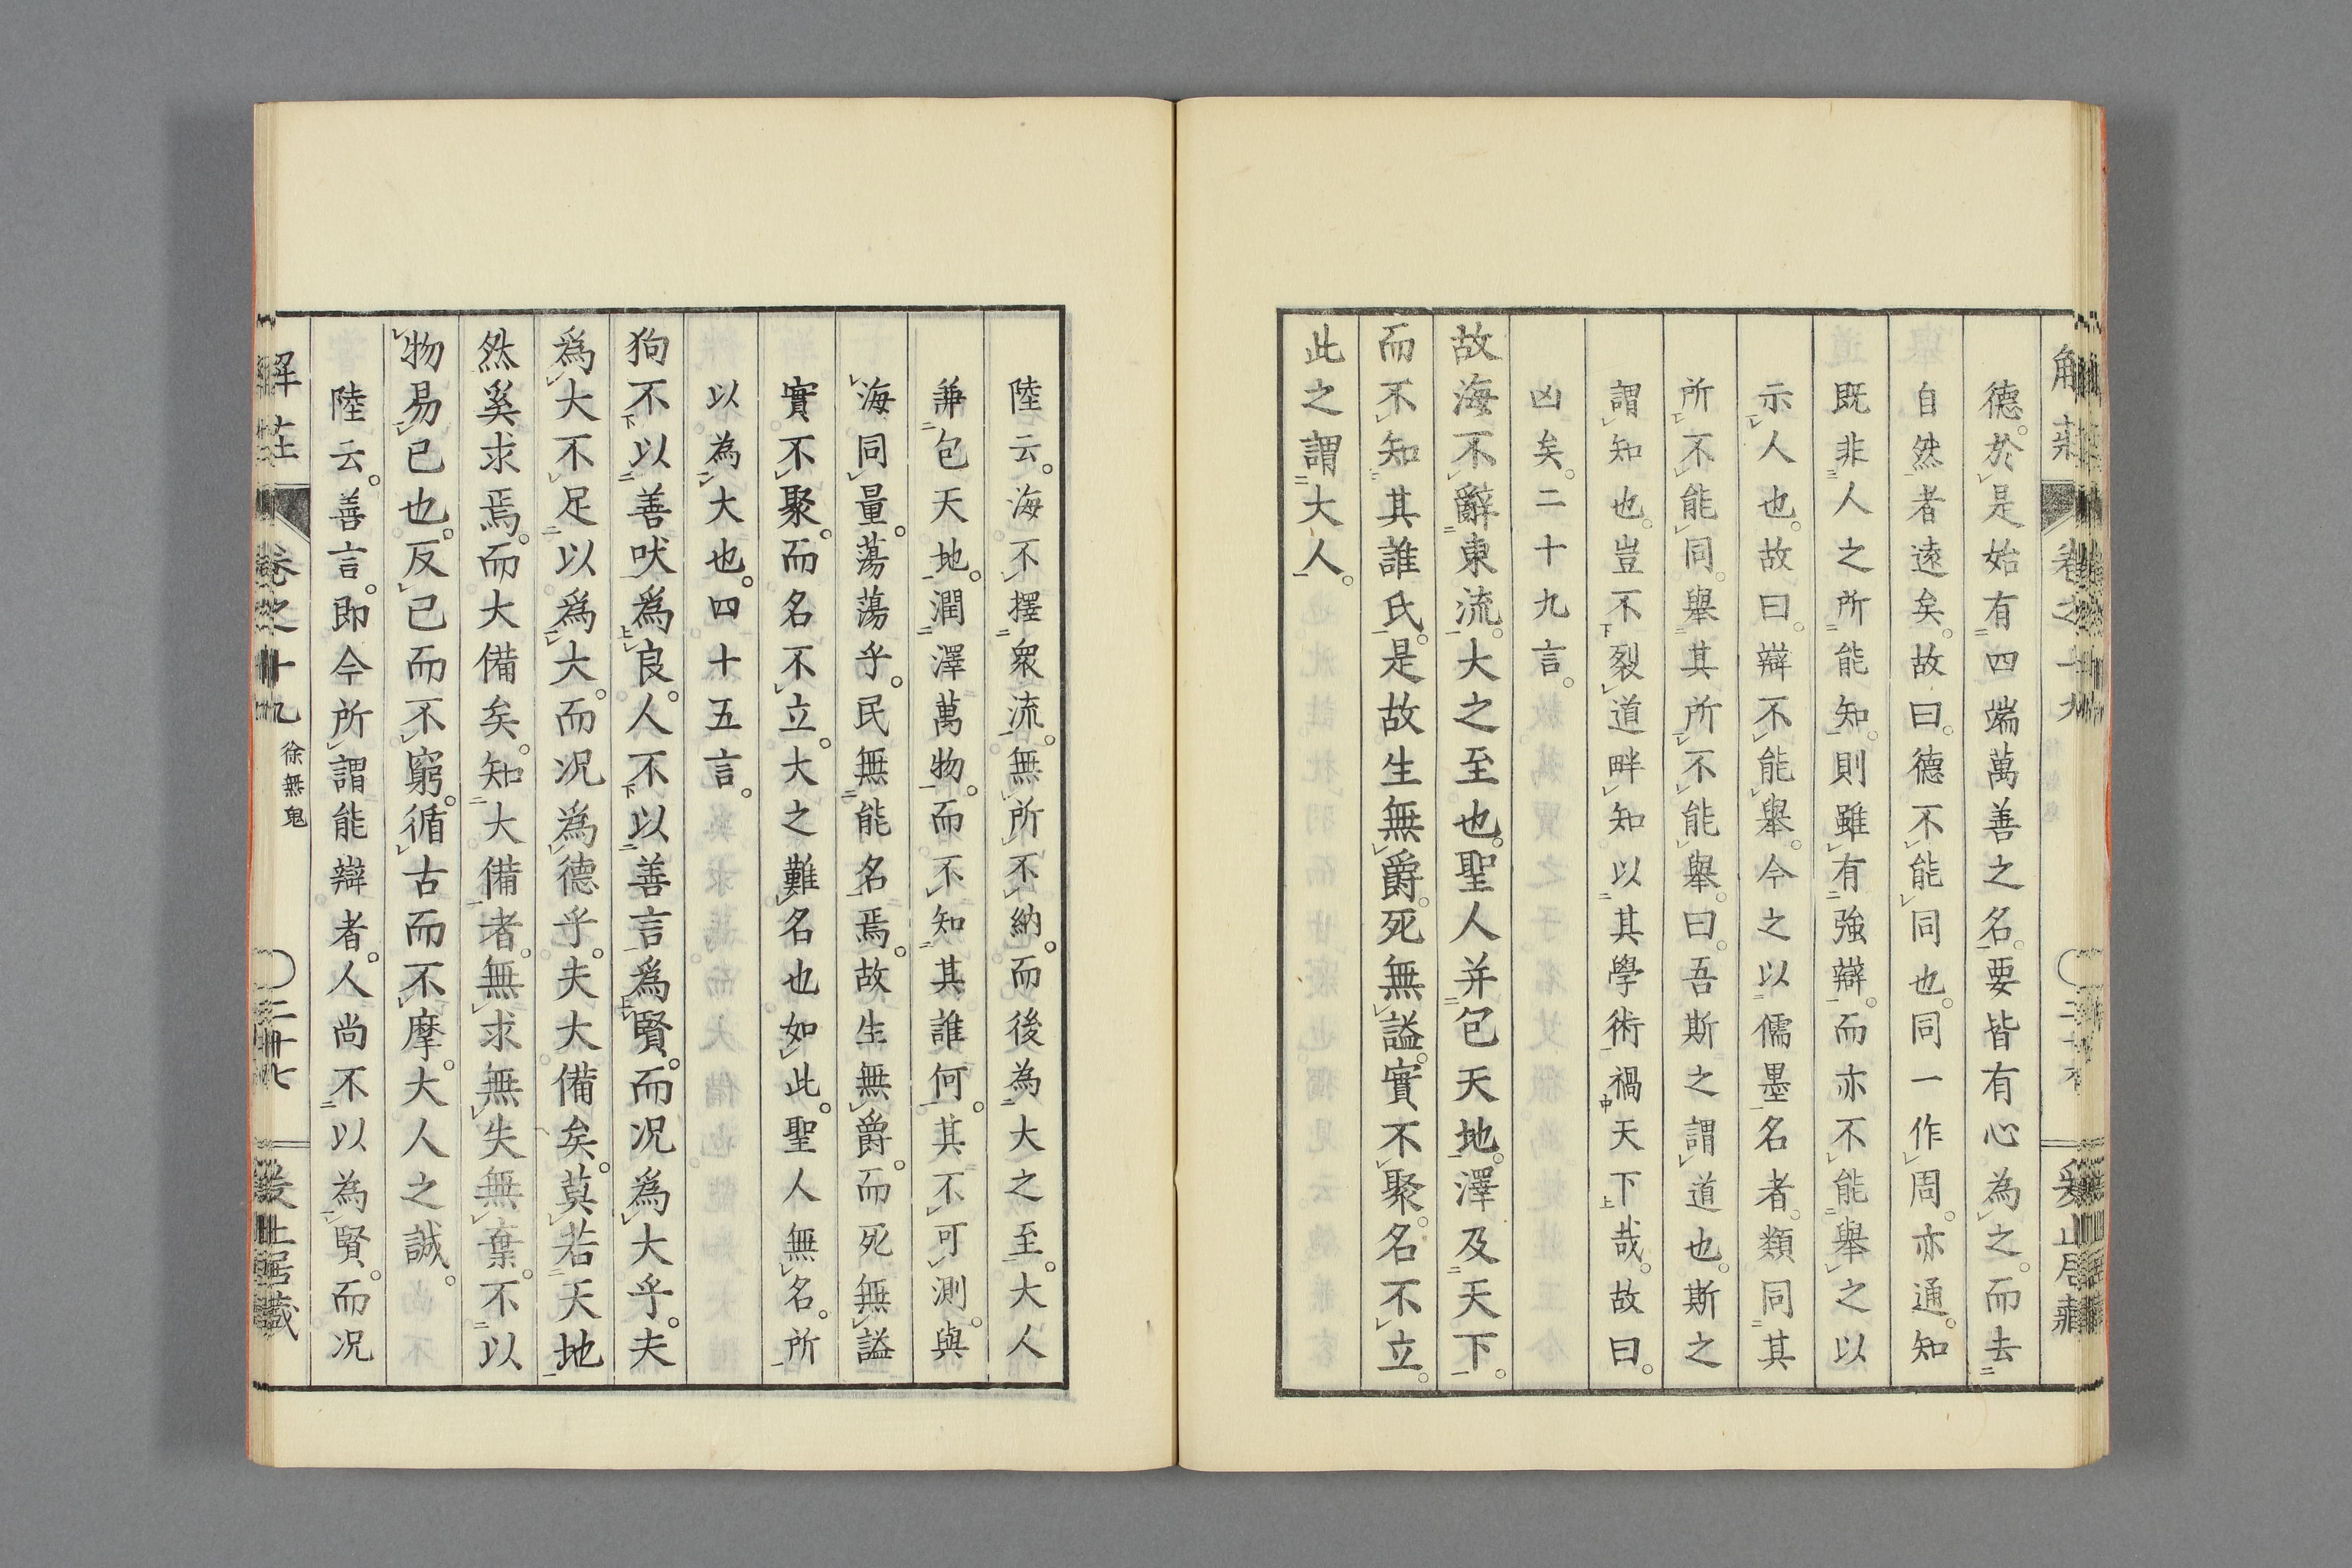 德。於是始有四端萬善之名。要皆有心為之。而去
自然者遠矣。故曰。德不能同也。同一作周。亦通。知
既非人之所能知。則雖有強辯。而亦不能舉之以
示人也。故曰。辯不能舉。今之以儒墨名者。類同其
所不能同。舉其所不能舉。曰。吾斯之謂道也。斯之
謂知也。豈不裂道畔知以其學術禍天下哉。故曰。
凶矣。二十九言。
故海不辭東流。大之至也。聖人并包天地。澤及天下。
而不知其誰氏。是故生無爵。死無謚。實不聚。名不立。
此之謂大人。
陸云。海不擇衆流。無所不納。而後為大之至。大人
兼包天地。潤澤萬物。而不知其誰何。其不可測。與
海同量。蕩蕩乎。民無能名焉。故生無爵。而死無謚
實不聚。而名不立。大之難名也如此。聖人無名。所
以為大也。四十五言。
狗不以善吠爲良。人不以善言爲賢。而況爲大乎。夫
爲大不足以爲大。而况爲德乎。夫大備矣。莫若天地
然奚求焉。而大備矣。知大備者。無求無失無棄。不以
物易已也。反已而不窮。循古而不摩。大人之誠。
陸云。善言。即今所謂能辯者。人尚不以為賢。而况
解莊 卷之十九 徐無鬼 二十七